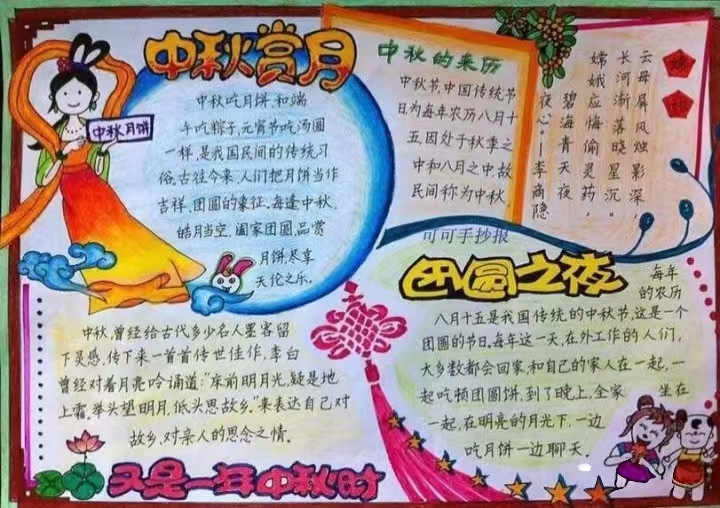 中秋赏月
中秋月饼
中秋吃月饼,和端
午吃粽子,元宵节吃汤圆
一样,是我国民间的传统习
俗。古往今来,人们把月饼当作
吉祥、团圆的象征。每逢中秋,
皓月当空,阖家团圆品赏
月饼尽享
天伦之乐。
中秋的来历
中秋节,中国传统节
日为每年农历八月十
五,因处于秋季之
中和八月之中,故
民间称为中秋。
嫦
娥
云母屏风烛影深,
长河渐落晓星沉。
嫦娥应悔偷灵药,
碧海青天夜
夜心。——李商隐
可可手抄报
团圆之夜
每年
的农历
八月十五是我国传统的中秋节,这是一个
团圆的节日。每年这一天,在外工作的人们,
大多数都会回家,和自己的家人在一起,一
起吃顿团圆饼,到了晚上,全家 坐在
一起,在明亮的月光下,一边
吃月饼一边聊天。
中秋,曾经给古代多少名人墨客留
下灵感,传下来一首首传世佳作,李白
曾经对着月亮吟诵道:“床前明月光,疑是地
上霜,举头望明月,低头思故乡。”来表达自己对
故乡,对亲人的思念之情。
又是一年中秋时